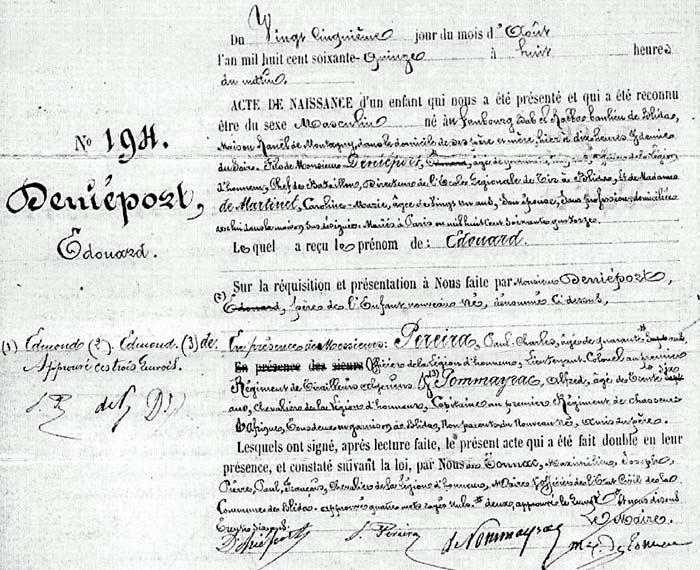 Du Vingt Cinquième jour du mois d'Août
l'an mil huit cent soixante-Quinze à huit heures
du matin.
ACTE DE NAISSANCE d'un enfant qui nous a été présenté et qui a été reconnu
être du sexe Masculin né à Bab el Rabba banlieue de Blidah,
Maison dans le domicile de ses père et mère, hier à dix heures & demie
du Soir. Fils de Monsieur Deniéport, Edouard, âgé de de la Légion
d'honneur, Chef de Bataillon, Directeur de l'Ecole Régionale de Tir à Blidah, et de Madame
de Martinel, Caroline-Marie, âgée de vingt ans, Son épouse, Sans profession, domiciliée
avec lui dans la maison Mariés à Paris en mil huit cent soixante
Lequel a reçu le prénom de : Edouard.
No 194.
Deniéport,
Edouard.
Sur la réquisition et présentation à Nous faite par Monsieur Deniéport,
(2) Edouard, père de l'Enfant nouveau né, dénommé Ci-dessus,
(1) Edmond (2). Edmond. (3) de.
Approuvé ces trois renvois.
En présence de Messieurs: Pereira, Paul-Charles, âgé de quarante
En présence des sieurs Officier de la Légion d'honneur, Lieutenant Colonel au premier
Régiment de Tirailleurs algériens & (3) Pommayrac, Alfred, âgé de trente
ans, Chevalier de la Légion d'honneur, Capitaine au premier Régiment de chasseurs
d'Afrique, Tous deux en garnison à Blidah, Non parents du Nouveau né, amis du père.
Lesquels ont signé, après lecture faite, le présent acte qui a été fait double en leur
présence, et constaté suivant la loi, par Nous de Tonnac, Maximilien, Joseph,
Pierre, Paul, François, Chevalier de la Légion d'honneur, Maire & Officier de l'Etat Civil de la
Commune de Blidah. approuvé quatre mots rayés nuls.
Le Maire.
Deniéport P. Pereira de Pommayrac Max. de Tonnac